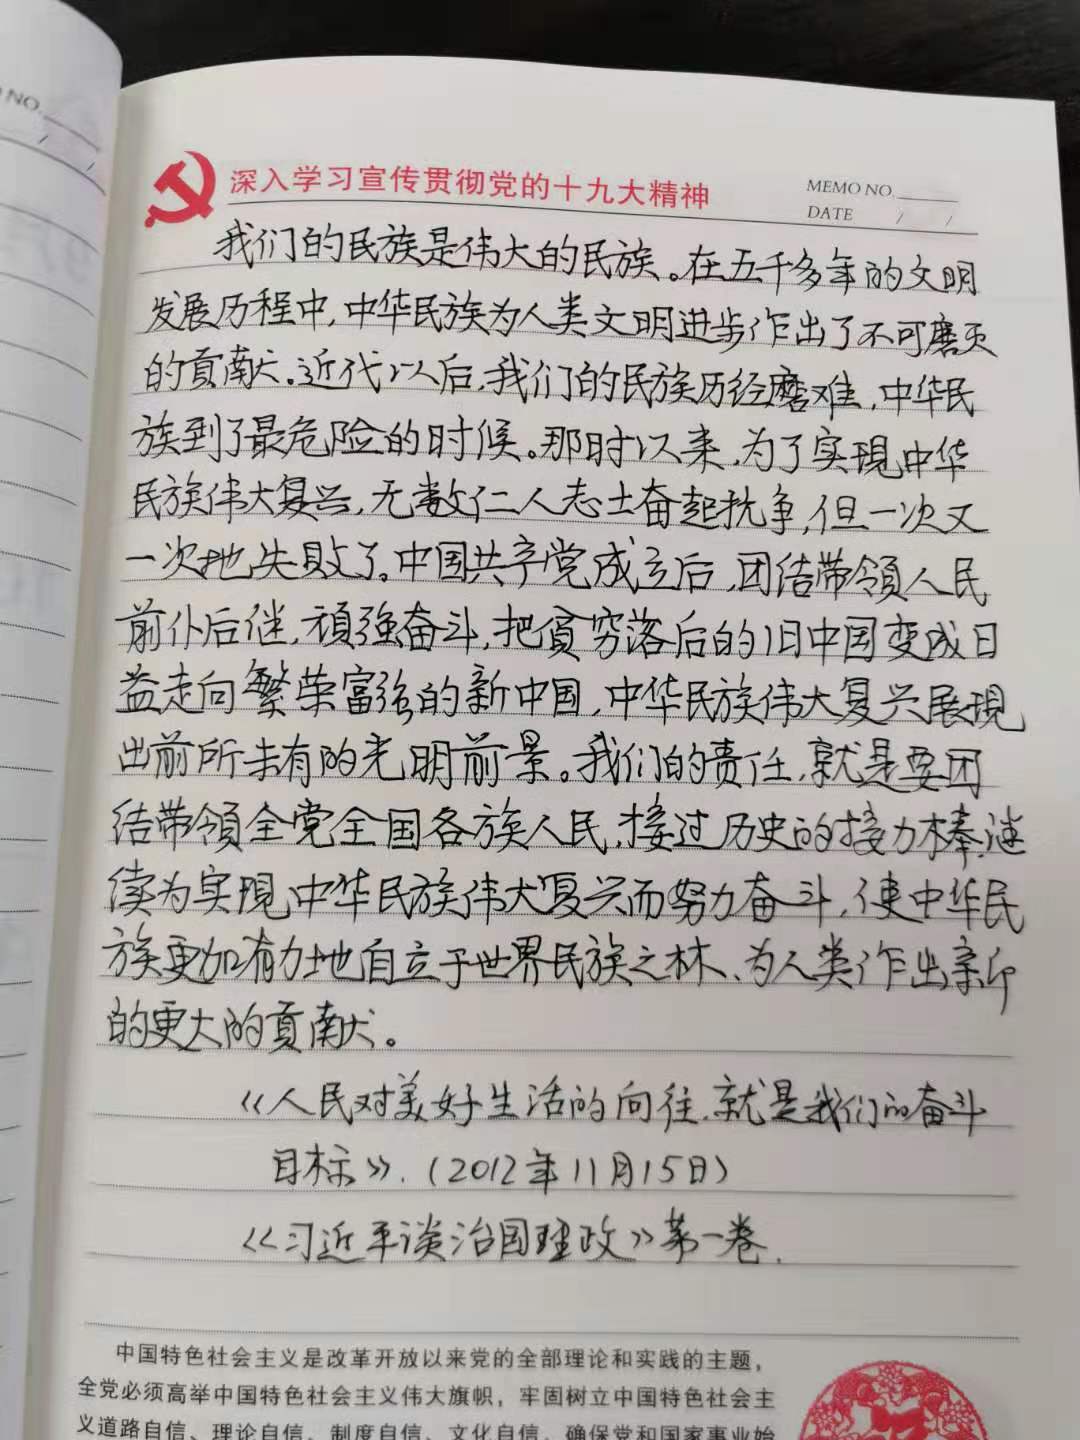 NO.
深入学习宣传贯彻党的十九大精神
MEMO NO.
DATE / /
我们的民族是伟大的民族。在五千多年的文明
发展历程中,中华民族为人类文明进步作出了不可磨灭
的贡献。近代以后,我们的民族历经磨难,中华民
族到了最危险的时候。那时以来,为了实现中华
民族伟大复兴,无数仁人志士奋起抗争,但一次又
一次地失败了。中国共产党成立后,团结带领人民
前仆后继,顽强奋斗,把贫穷落后的旧中国变成日
益走向繁荣富强的新中国,中华民族伟大复兴展现
出前所未有的光明前景。我们的责任,就是要团
结带领全党全国各族人民,接过历史的接力棒,继
续为实现中华民族伟大复兴而努力奋斗,使中华民
族更加有力地自立于世界民族之林、为人类作出新
的更大的贡献。
《人民对美好生活的向往,就是我们的奋斗
目标》.(2012年11月15日)
《习近平谈治国理政》第一卷.
中国特色社会主义是改革开放以来党的全部理论和实践的主题,
全党必须高举中国特色社会主义伟大旗帜,牢固树立中国特色社会主
义道路自信、理论自信、制度自信、文化自信,确保党和国家事业始